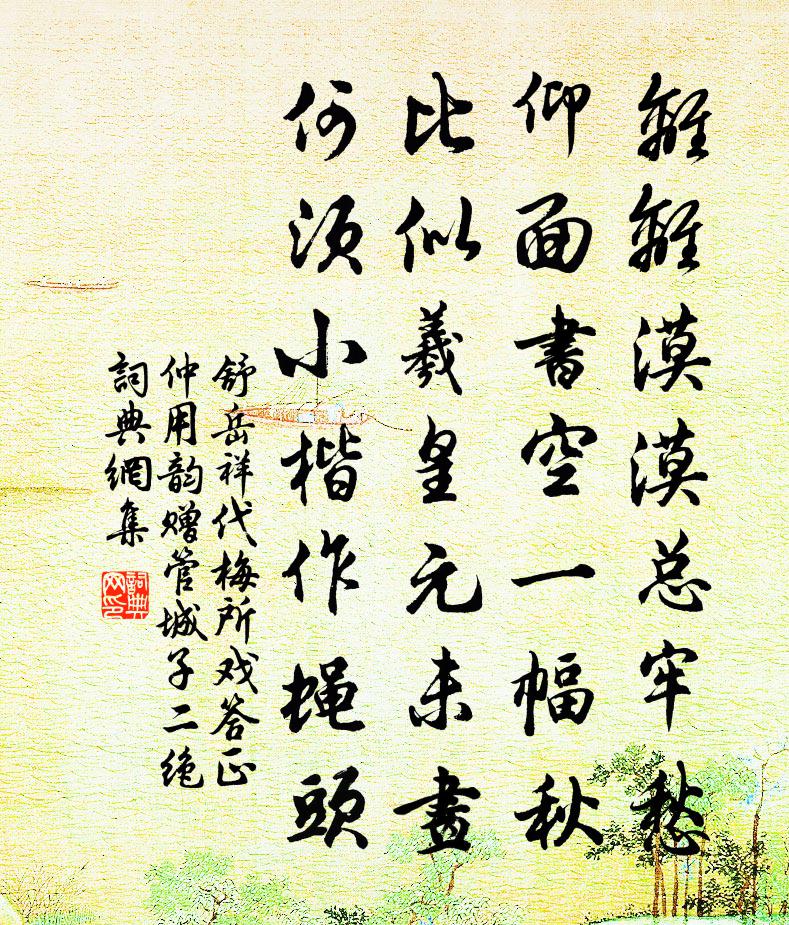 離離漠漠总牢愁
仰面書空一幅秋
比似羲皇元未畫
何须小楷作蝇頭
舒岳祥代梅所戏答正
仲用韵赠管城子二绝
詞典網集
詞典
网印